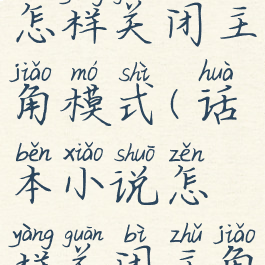 怎样关闭主
jiǎo mó shì huà
角模式(话
běn xiǎo shuō zěn
本小说怎
yàng guān bì zhǔ jiǎo
样关闭主角